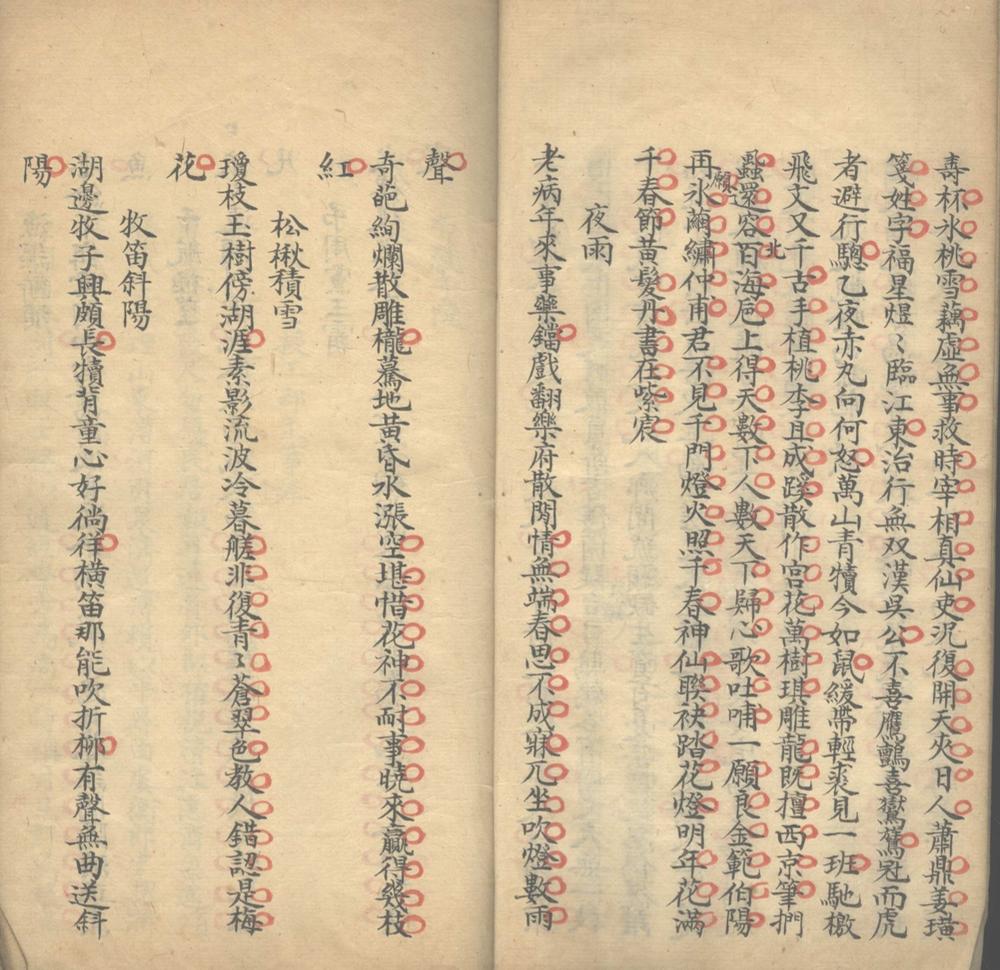 壽杯氷桃雪藕虛無事救時宰相真仙吏況復開天夾日人蕭鼎姜璜
箋姓字福星煜〻臨江東治行無双漢吳公不喜鷹鸇喜鸑鷟冠而虎
者避行驄乙夜赤丸向何怒萬山青犢今如鼠緩帶輕裘見一班馳檄
飛文又千古手植桃李且成蹊散作宮花萬樹琪雕龍既擅西京筆捫
蝨還容百海卮上得天數下人數天下歸心歌吐哺一願良金範伯陽
北
再氷繭繡仲甫君不見千門燈火照千春神仙聯袂踏花燈明年花滿
願
千春節黃髮丹書在紫宸
夜雨
老病年來事藥鐺戲翻樂府散閒情無端春思不成寐兀坐吹燈數雨
聲
奇葩絢爛散雕櫳驀地黃昏水漲空堪惜花神不耐事曉來贏得幾枝
紅
松楸積雪
瓊枝玉樹傍湖涯素影流波冷暮艖非復青〻蒼翠色教人錯認是梅
花
牧笛斜陽
湖邊牧子興頗長犢背童心好徜徉橫笛那能吹折柳有聲無曲送斜
陽